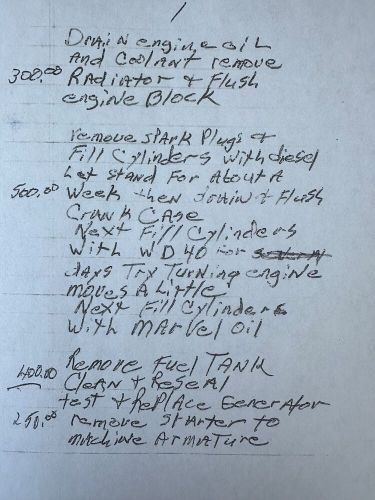 1
Drain engine oil
And Coolant remove
300.00 Radiator + Flush
engine Block
remove spark Plugs +
Fill Cylinders with diesel
Let stand For About A
500.00 Week then drain + Flush
Crank Case
Next Fill Cylinders
With WD 40 For
days Try Turning engine
moves A Little
Next Fill Cylinders
With MArvel Oil
Remove Fuel TANK
400.00 Clean + Reseal
test + RePlace Generator
250.00 remove starter to
machine Armature